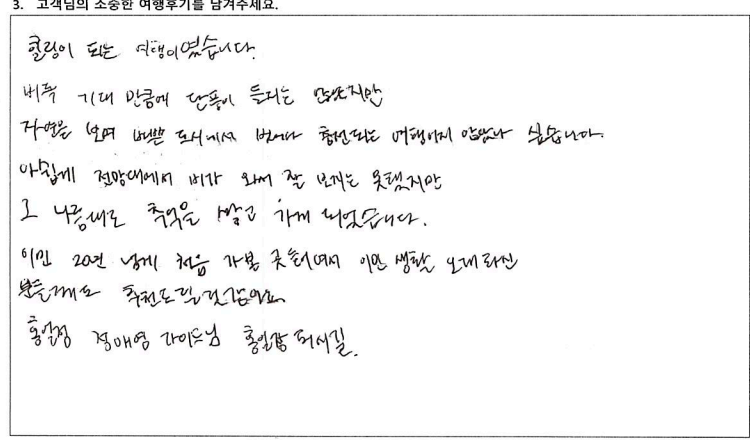 3. 고객님의 소중한 여행후기를 남겨주세요.
힐링이 되는 여행이였습니다.
비록 기대 만큼에 단풍이 들지는 않았지만
자연을 보며 바쁜 도시에서 벗어나 충전되는 여행이지 않았나 싶습니다.
아쉽게 전망대에서 비가 와서 잘 보지는 못했지만
그 나름대로 추억을 쌓고 가게 되었습니다.
이민 20년 넘게 처음 가본 곳들이여서 이민 생활 오래하신
분들께도 추천드릴것같아요.
정애영 가이드님 되시길.